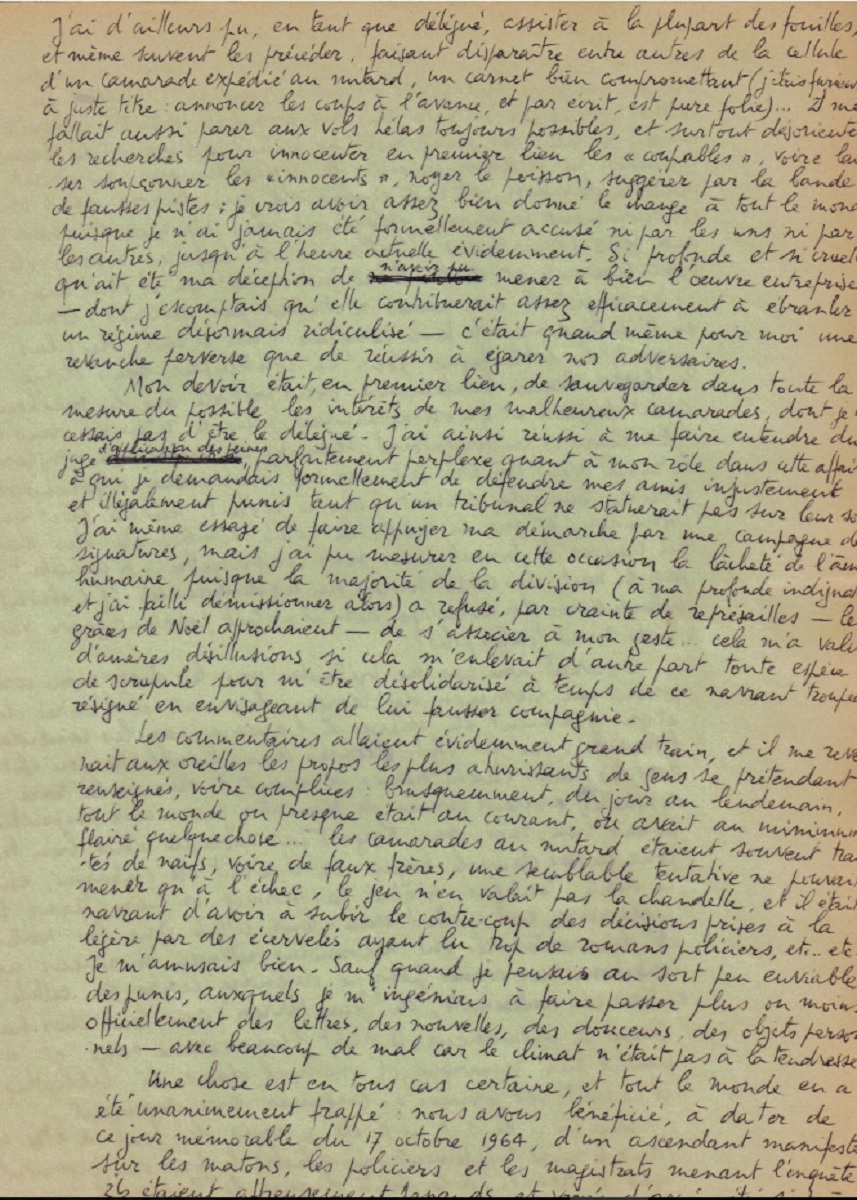 J'ai d'ailleurs pu, en tant que délégué, assister à la plupart des fouilles,
et même souvent les précéder, faisant disparaître entre autres de la cellule
d'un camarade expédié au mitard, un carnet bien compromettant (j'étais furieux
à juste titre : annoncer les coups à l'avance, et par écrit, est pure folie)... Il me
fallait aussi parer aux vols hélas toujours possibles, et surtout désoriente
les recherches pour innocenter en premier lieu les « coupables », voire lai
ser soupçonner les « innocents », noyer le poisson, suggérer par la bande
de fausses pistes : je crois avoir assez bien donné le change à tout le mond
puisque je n'ai jamais été formellement accusé ni par les uns ni par
les autres, jusqu'à l'heure actuelle évidemment. Si profonde et si cruel
qu'ait été ma déception de n'avoir pu mener à bien l'œuvre entreprise
— dont j'escomptais qu'elle contribuerait assez efficacement à ébranler
un régime désormais ridiculisé — c'était quand même pour moi une
revanche perverse que de réussir à égarer nos adversaires.
Mon devoir était, en premier lieu, de sauvegarder dans toute la
mesure du possible les intérêts de mes malheureux camarades, dont je
cessais pas d'être le délégué. J'ai ainsi réussi à me faire entendre du
juge d'application des peines, parfaitement perplexe quant à mon rôle dans cette affai
à qui je demandais formellement de défendre mes amis injustement
et illégalement punis tant qu'un tribunal ne statuerait pas sur leur so
J'ai même essayé de faire appuyer ma démarche par une campagne de
signatures, mais j'ai pu mesurer en cette occasion la lâcheté de l'âm
humaine puisque la majorité de la division (à ma profonde indignat
et j'ai failli démissionner alors) a refusé, par crainte de représailles — le
grâces de Noël approchaient — de s'associer à mon geste... cela m'a valu
d'amères désillusions si cela m'enlevait d'autre part toute espèce
de scrupule pour m'être désolidarisé à temps de ce navrant troupe
résigné en envisageant de lui fausser compagnie.
Les commentaires allaient évidemment grand train, et il me reve
nait aux oreilles les propos les plus ahurissants de gens se prétendant
renseignés, voire complices : brusquement, du jour au lendemain,
tout le monde ou presque était au courant, ou avait au minimum
flairé quelque chose... les camarades au mitard étaient souvent trai
tés de naïfs, voire de faux frères, une semblable tentative ne pouvait
mener qu'à l'échec, le jeu n'en valait pas la chandelle, et il était
navrant d'avoir à subir le contre-coup des décisions prises à la
légère par des écervelés ayant lu trop de romans policiers, etc... etc.
Je m'amusais bien. Sauf quand je pensais au sort peu enviable
des punis, auxquels je m'ingéniais à faire passer plus ou moins
officiellement des lettres, des nouvelles, des douceurs, des objets person
nels — avec beaucoup de mal car le climat n'était pas à la tendresse
Une chose est en tous cas certaine, et tout le monde en a
été unanimement frappé : nous avons bénéficié, à dater de
ce jour mémorable du 17 octobre 1964, d'un ascendant manifeste
sur les matons, les policiers et les magistrats menant l'enquête
Ils étaient